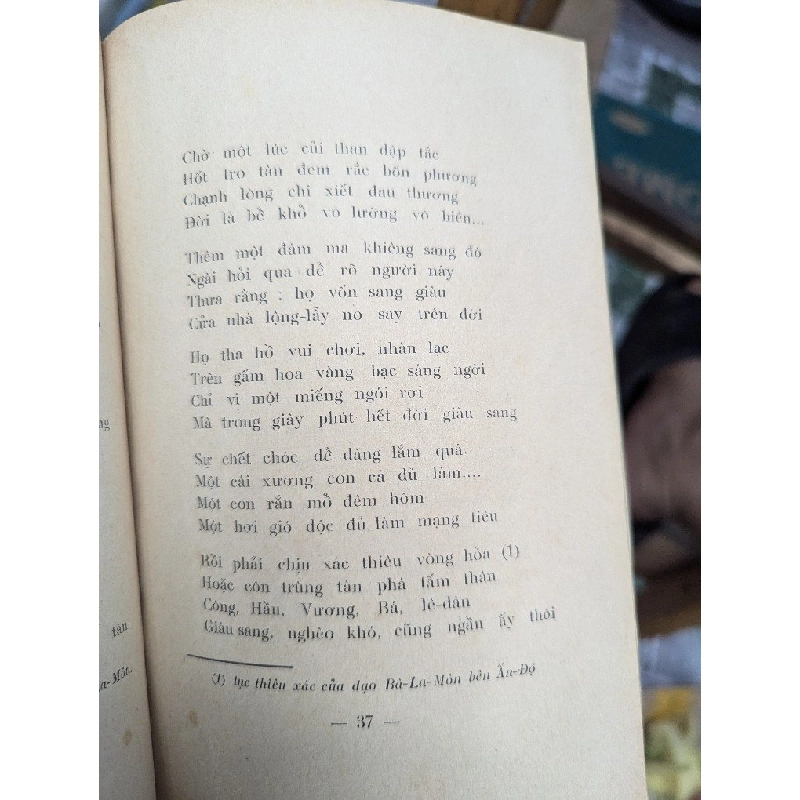 Chờ một lúc củi than dập tắc
Hốt tro tàn đem rắc bốn phương
Chạnh lòng chi xiết đau thương
Đời là bể khổ vô lường vô biên...
Thêm một đám ma khiêng sang đó
Ngài hỏi qua để rõ người này
Thưa rằng : họ vốn sang giàu
Cửa nhà lộng-lẫy nô say trên đời
Họ tha hồ vui chơi, nhàn lạc
Trên gấm hoa vàng bạc sáng ngời
Chỉ vì một miếng ngói rơi
Mà trong giây phút hết đời giàu sang
Sự chết chóc dễ dàng lắm quá
Một cái xương con cá đủ làm....
Một con rắn mổ đêm hôm
Một hơi gió độc đủ làm mạng tiêu
Rồi phải chịu xác thiêu vòng hỏa (1)
Hoặc côn trùng tàn phá tấm thân
Công, Hầu, Vương, Bá, lê-dân
Giàu sang, nghèo khó, cũng ngần ấy thôi
(1) tục thiêu xác của đạo Bà-La-Môn bên Ấn-Độ
— 37 —